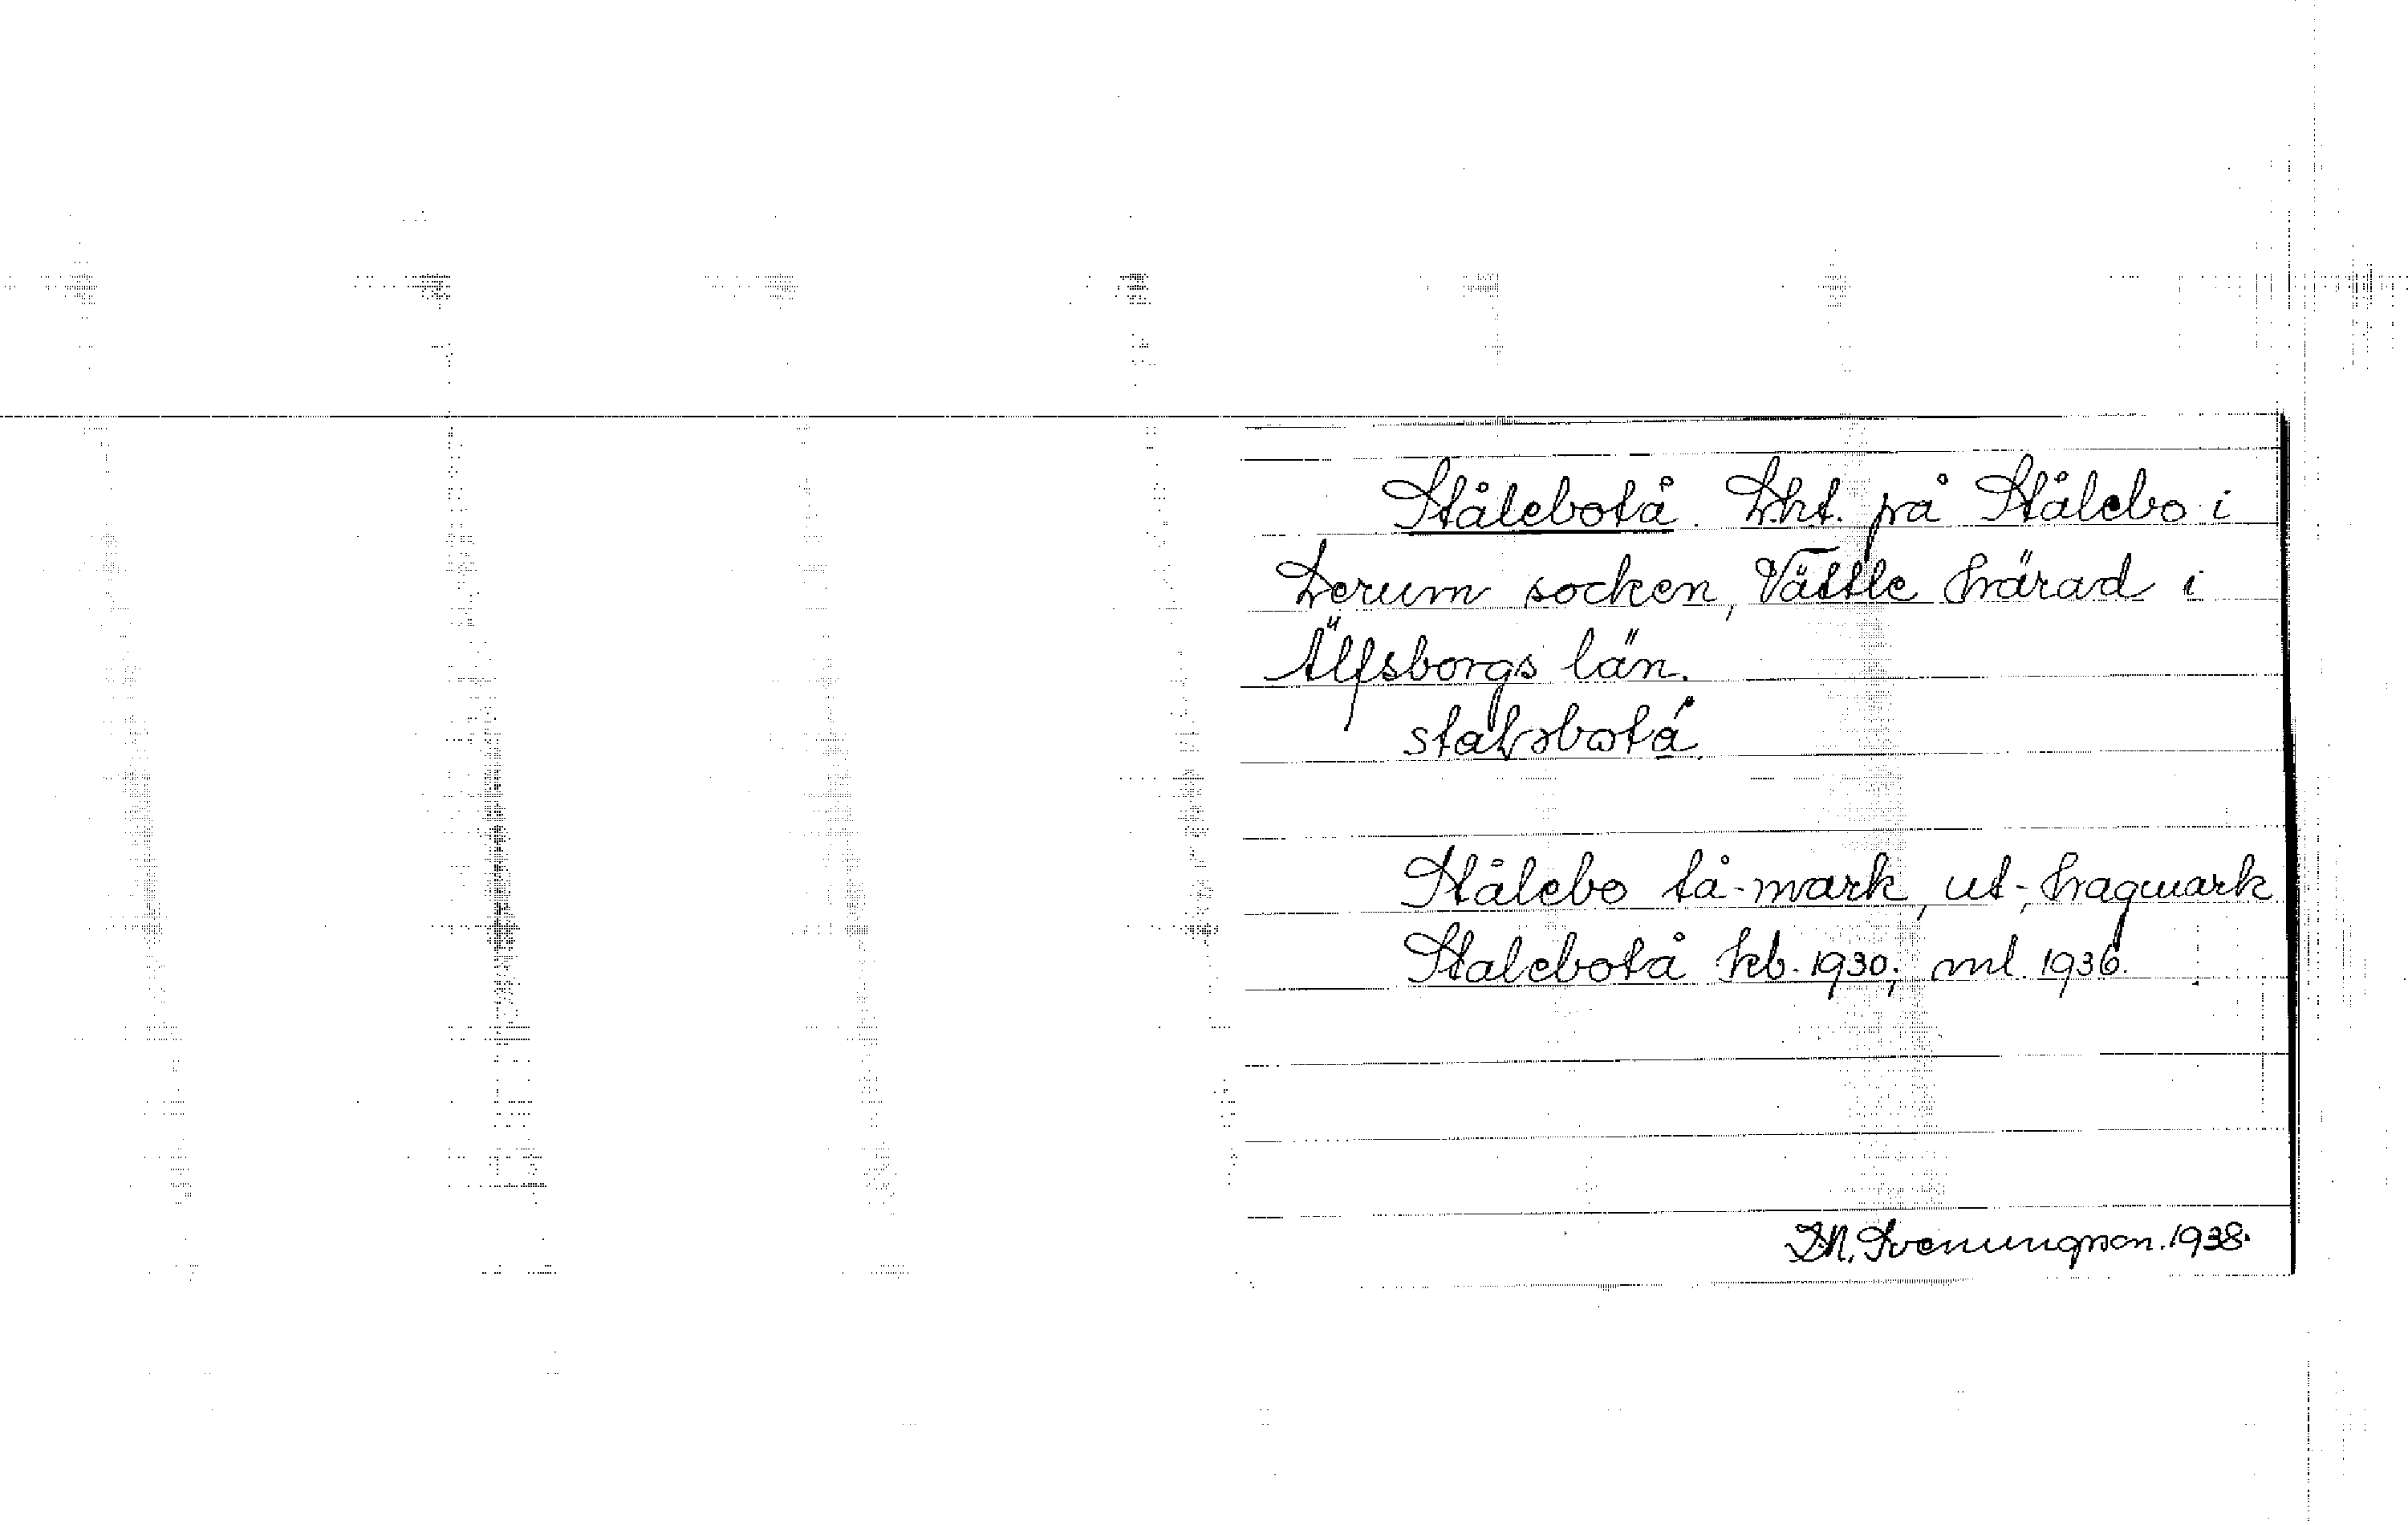 Stålebotå. Lht. på Stålebo i
Lerum socken, Vättle härad i
Älfsborgs län.
Stålebo tå-mark, ut-, hagmark
Stålebotå kb. 1930; ml 1936.
Svenungson. 1938.